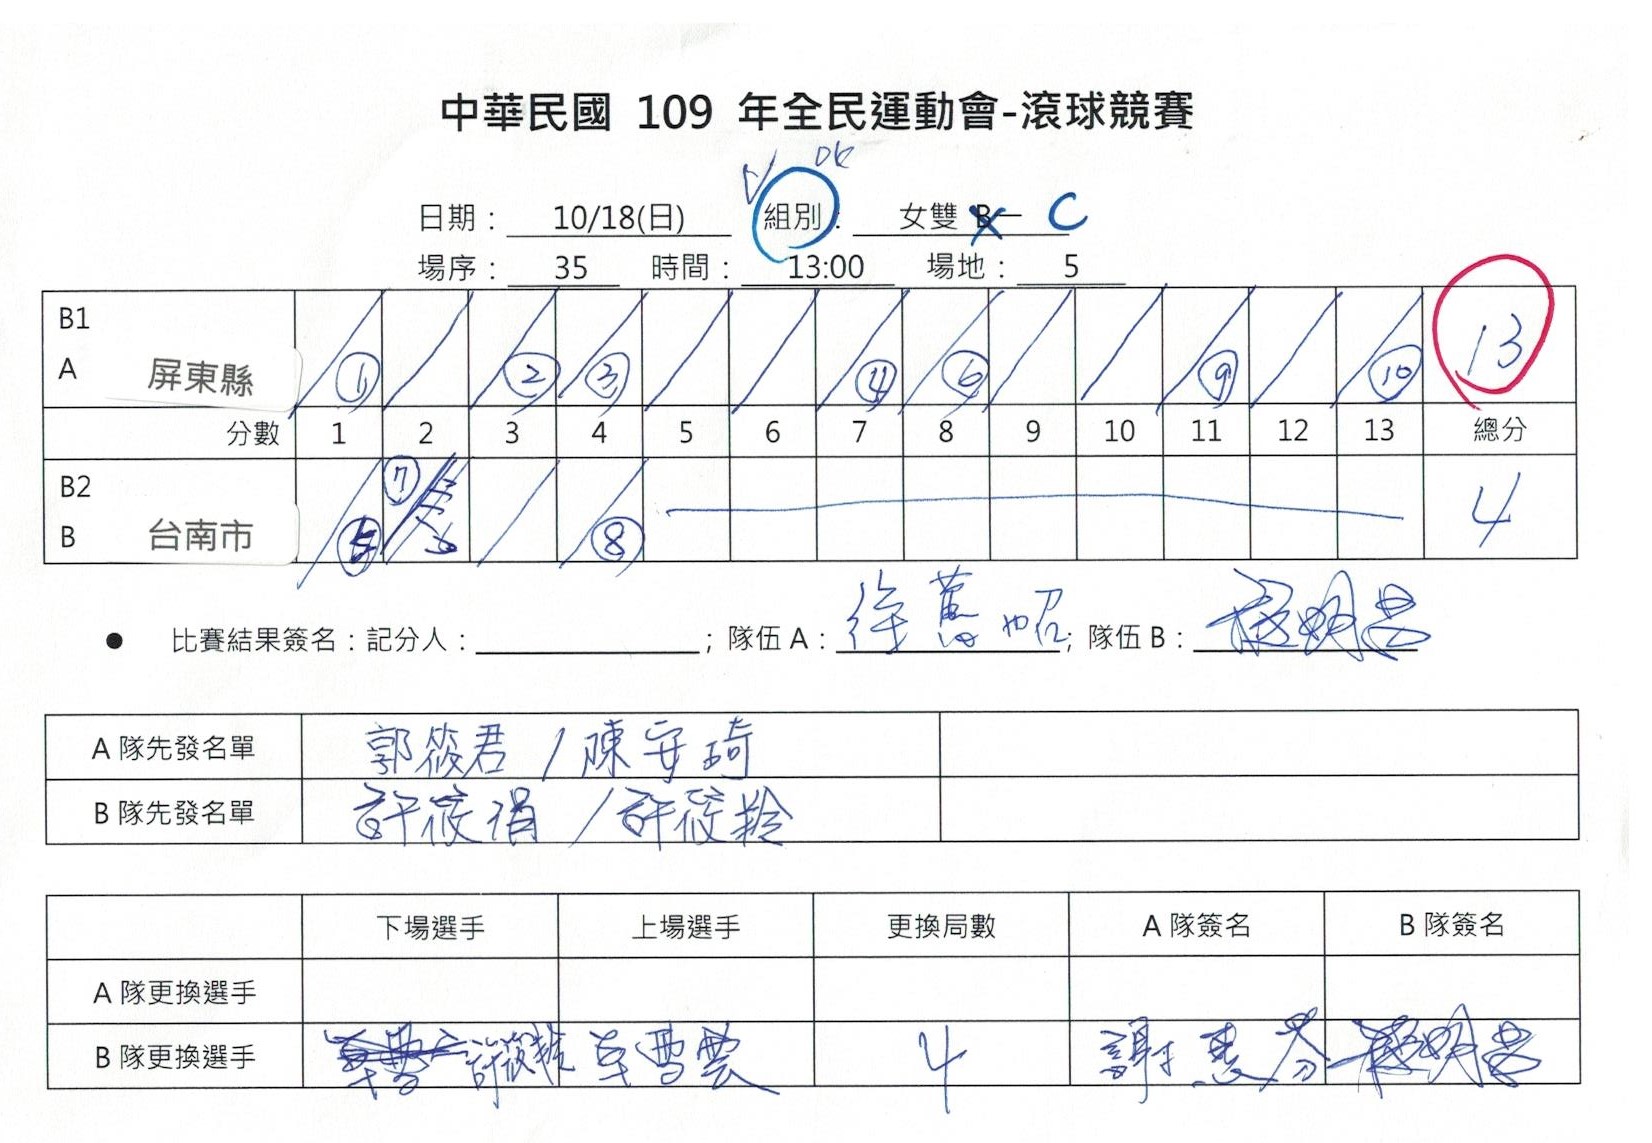 中華民國 109 年全民運動會-滾球競賽
ok
日期： 10/18(日) 組別： 女雙 B C
場序： 35 時間： 13:00 場地： 5
B1
A 屏東縣 ① ② ③ ④ ⑥ ⑨ ⑩ 13
分數 1 2 3 4 5 6 7 8 9 10 11 12 13 總分
B2 ⑦
B 台南市 ⑤ ⑧ 4
● 比賽結果簽名：記分人：；隊伍 A： ；隊伍 B：
A 隊先發名單 郭筱君 / 陳安琦
B 隊先發名單 許筱涓 / 許筱羚
下場選手 上場選手 更換局數 A 隊簽名 B 隊簽名
A 隊更換選手
B 隊更換選手 許筱羚 卓雪雲 4 謝惠芬